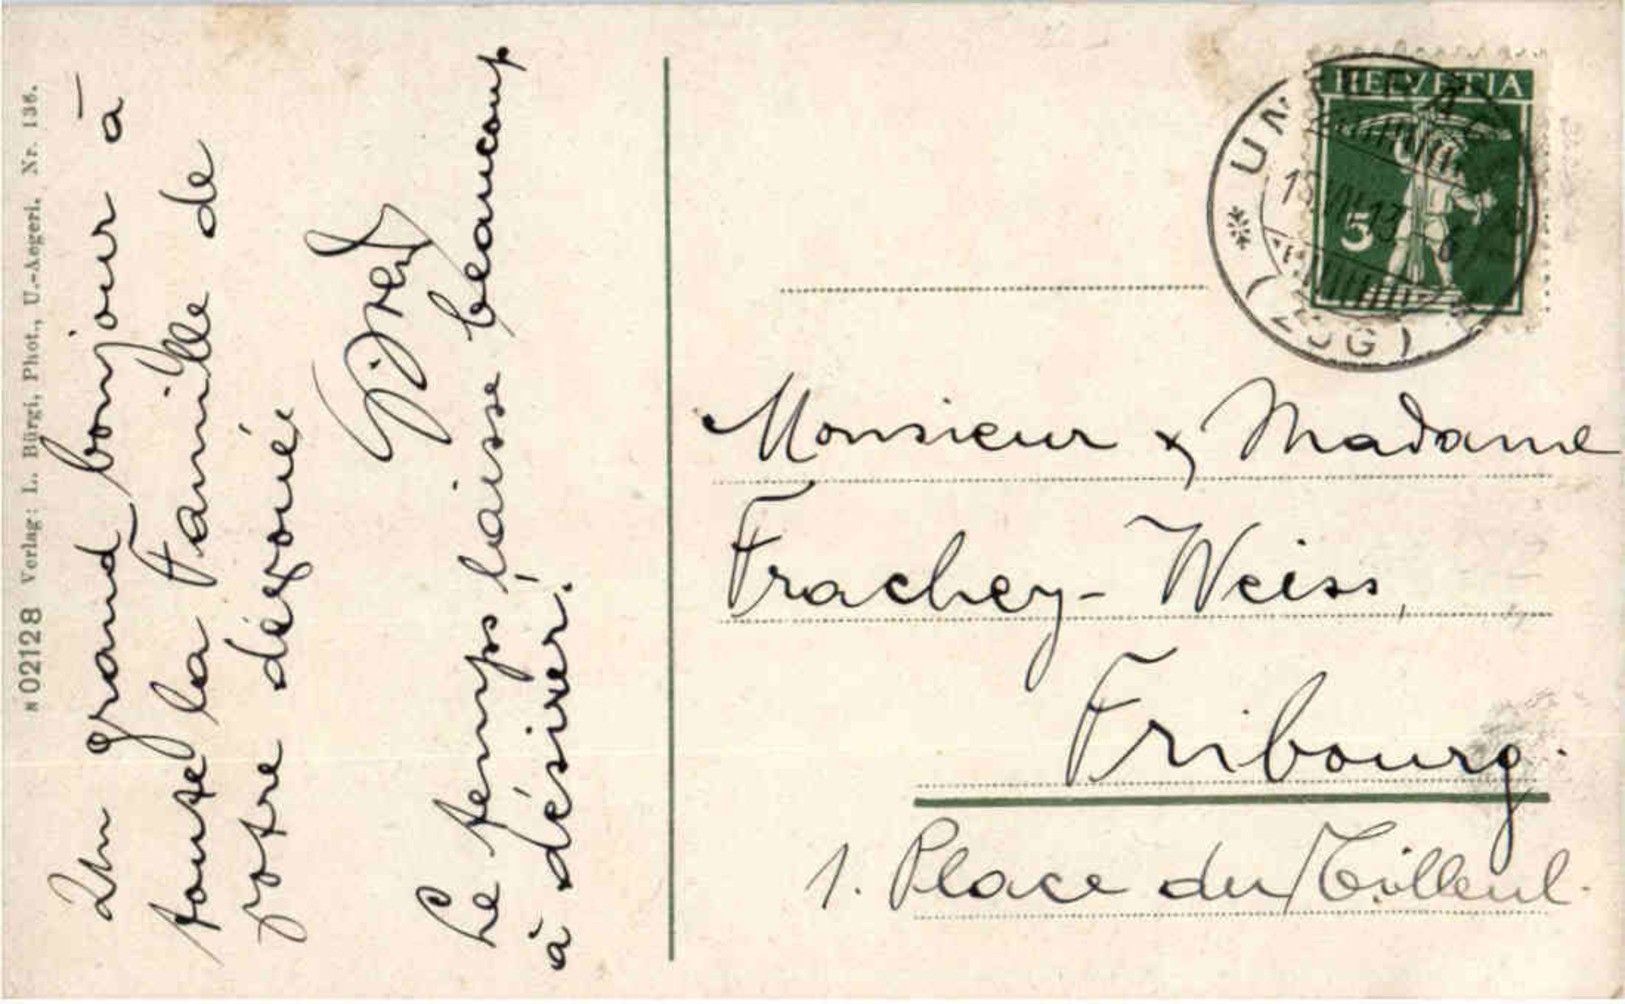 N 02128 Verlag: L. Bürgi, Phot., U.-Aegeri. Nr. 136.
Un grand bonjour à
toute la famille de
votre dévouée
Le temps laisse beaucoup
à désirer!
HELVETIA
5
(ZUG)
Monsieur & Madame
Frachey-Weiss,
Fribourg.
1. Place du Tilleul.